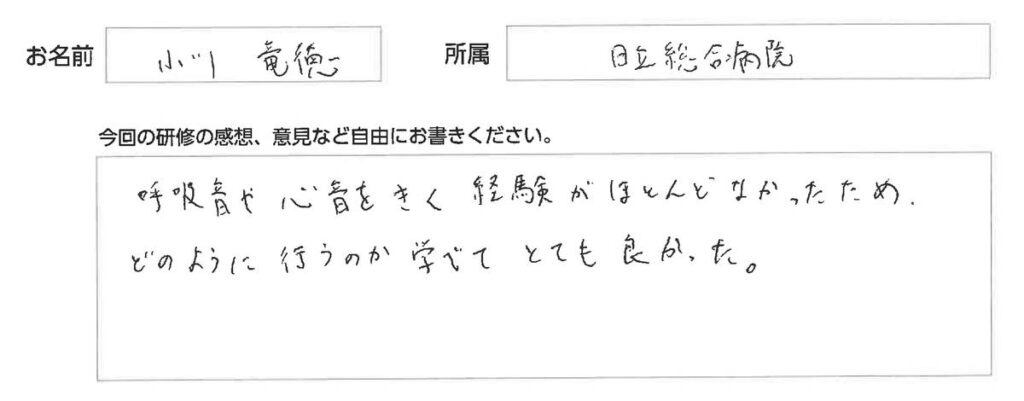 お名前 小川 竜徳 所属 日立総合病院
今回の研修の感想、意見など自由にお書きください。
呼吸音や心音をきく経験がほとんどなかったため、
どのように行うのか学べてとても良かった。